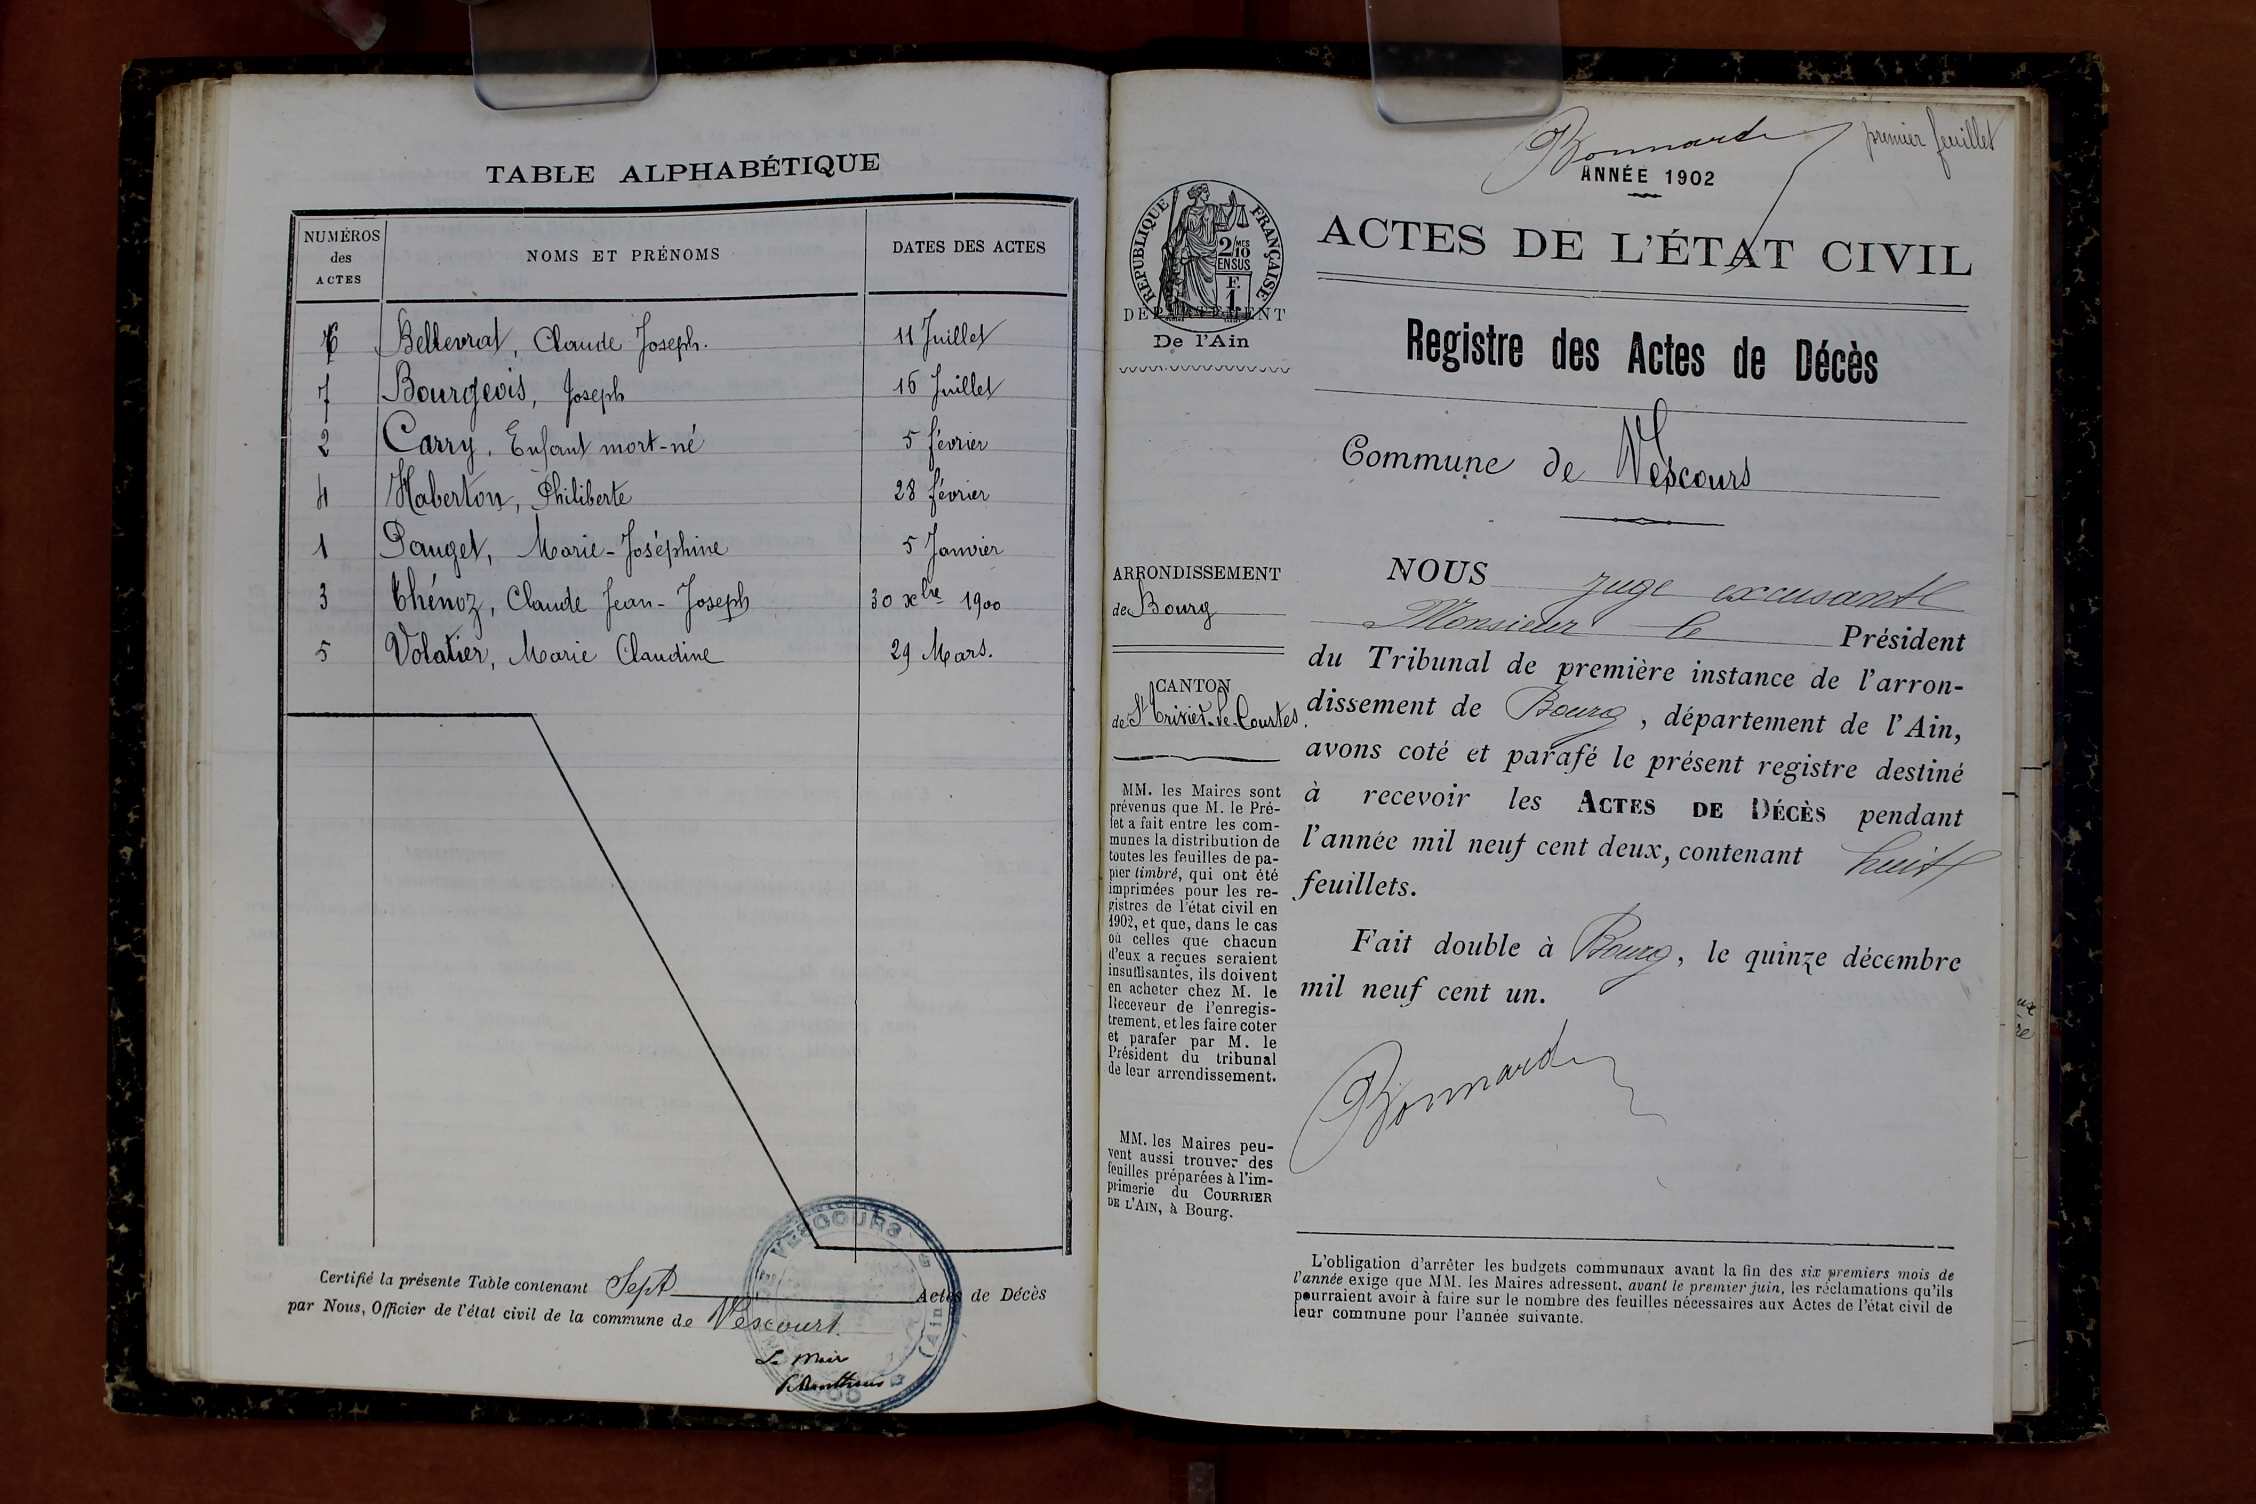 TABLE ALPHABÉTIQUE
NUMÉROS des ACTES NOMS ET PRÉNOMS DATES DES ACTES
6 Bellevrat, Claude Joseph. 11 Juillet
7 Bourgeois, Joseph 16 Juillet
2 Carry, Enfant mort-né 5 février
4 Haberton, Philiberte 28 février
1 Pauget, Marie-Joséphine 5 Janvier
3 Thénoz, Claude Jean-Joseph 30 xbre 1900
5 Volatier, Marie Claudine 29 Mars.
Certifié la présente Table contenant Sept Actes de Décès
par Nous, Officier de l'état civil de la commune de Vescourt.
VESCOURS
(Ain)
Le Maire
premier feuillet
Bonnard
ANNÉE 1902
ACTES DE L'ÉTAT CIVIL
RÉPUBLIQUE FRANÇAISE
2/10 MES
EN SUS
F.
1
DÉPARTEMENT
De l'Ain
Registre des Actes de Décès
Commune de Vescours
ARRONDISSEMENT
de Bourg
CANTON
de St Trivier-de-Courtes.
MM. les Maires sont
prévenus que M. le Pré-
fet a fait entre les com-
munes la distribution de
toutes les feuilles de pa-
pier timbré, qui ont été
imprimées pour les re-
gistres de l'état civil en
1902, et que, dans le cas
où celles que chacun
d'eux a reçues seraient
insuffisantes, ils doivent
en acheter chez M. le
Receveur de l'enregis-
trement, et les faire coter
et parafer par M. le
Président du tribunal
de leur arrondissement.
MM. les Maires peu-
vent aussi trouver des
feuilles préparées à l'im-
primerie du COURRIER
DE L'AIN, à Bourg.
NOUS juge excusant
Monsieur le Président
du Tribunal de première instance de l'arron-
dissement de Bourg, département de l'Ain,
avons coté et parafé le présent registre destiné
à recevoir les ACTES DE DÉCÈS pendant
l'année mil neuf cent deux, contenant huit
feuillets.
Fait double à Bourg, le quinze décembre
mil neuf cent un.
Bonnard
L'obligation d'arrêter les budgets communaux avant la fin des six premiers mois de
l'année exige que MM. les Maires adressent, avant le premier juin, les réclamations qu'ils
pourraient avoir à faire sur le nombre des feuilles nécessaires aux Actes de l'état civil de
leur commune pour l'année suivante.